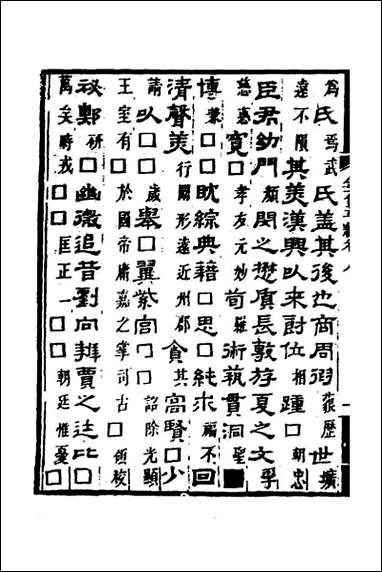 為氏焉武氏蓋其後也商周徦藐歷世壙
遠不隕其美漢興以來爵位相踵□朝忠
臣君幼門顏閔之懋質長敷游夏之文學
慈惠寬□孝友元妙苞羅術藝貫洞聖■
博兼□□耽綜典藉□思□純求福不回
清聲美行闡形遠近州郡貪其高賢□少
請以□□□歲舉□翼紫宮□□詔除光顯
王室有□於國帝庸嘉之掌司古□領校
秘鄭研□幽微追昔劉向辯賈之徒比□
萬矣時戎□□匡正一□□朝廷惟憂□